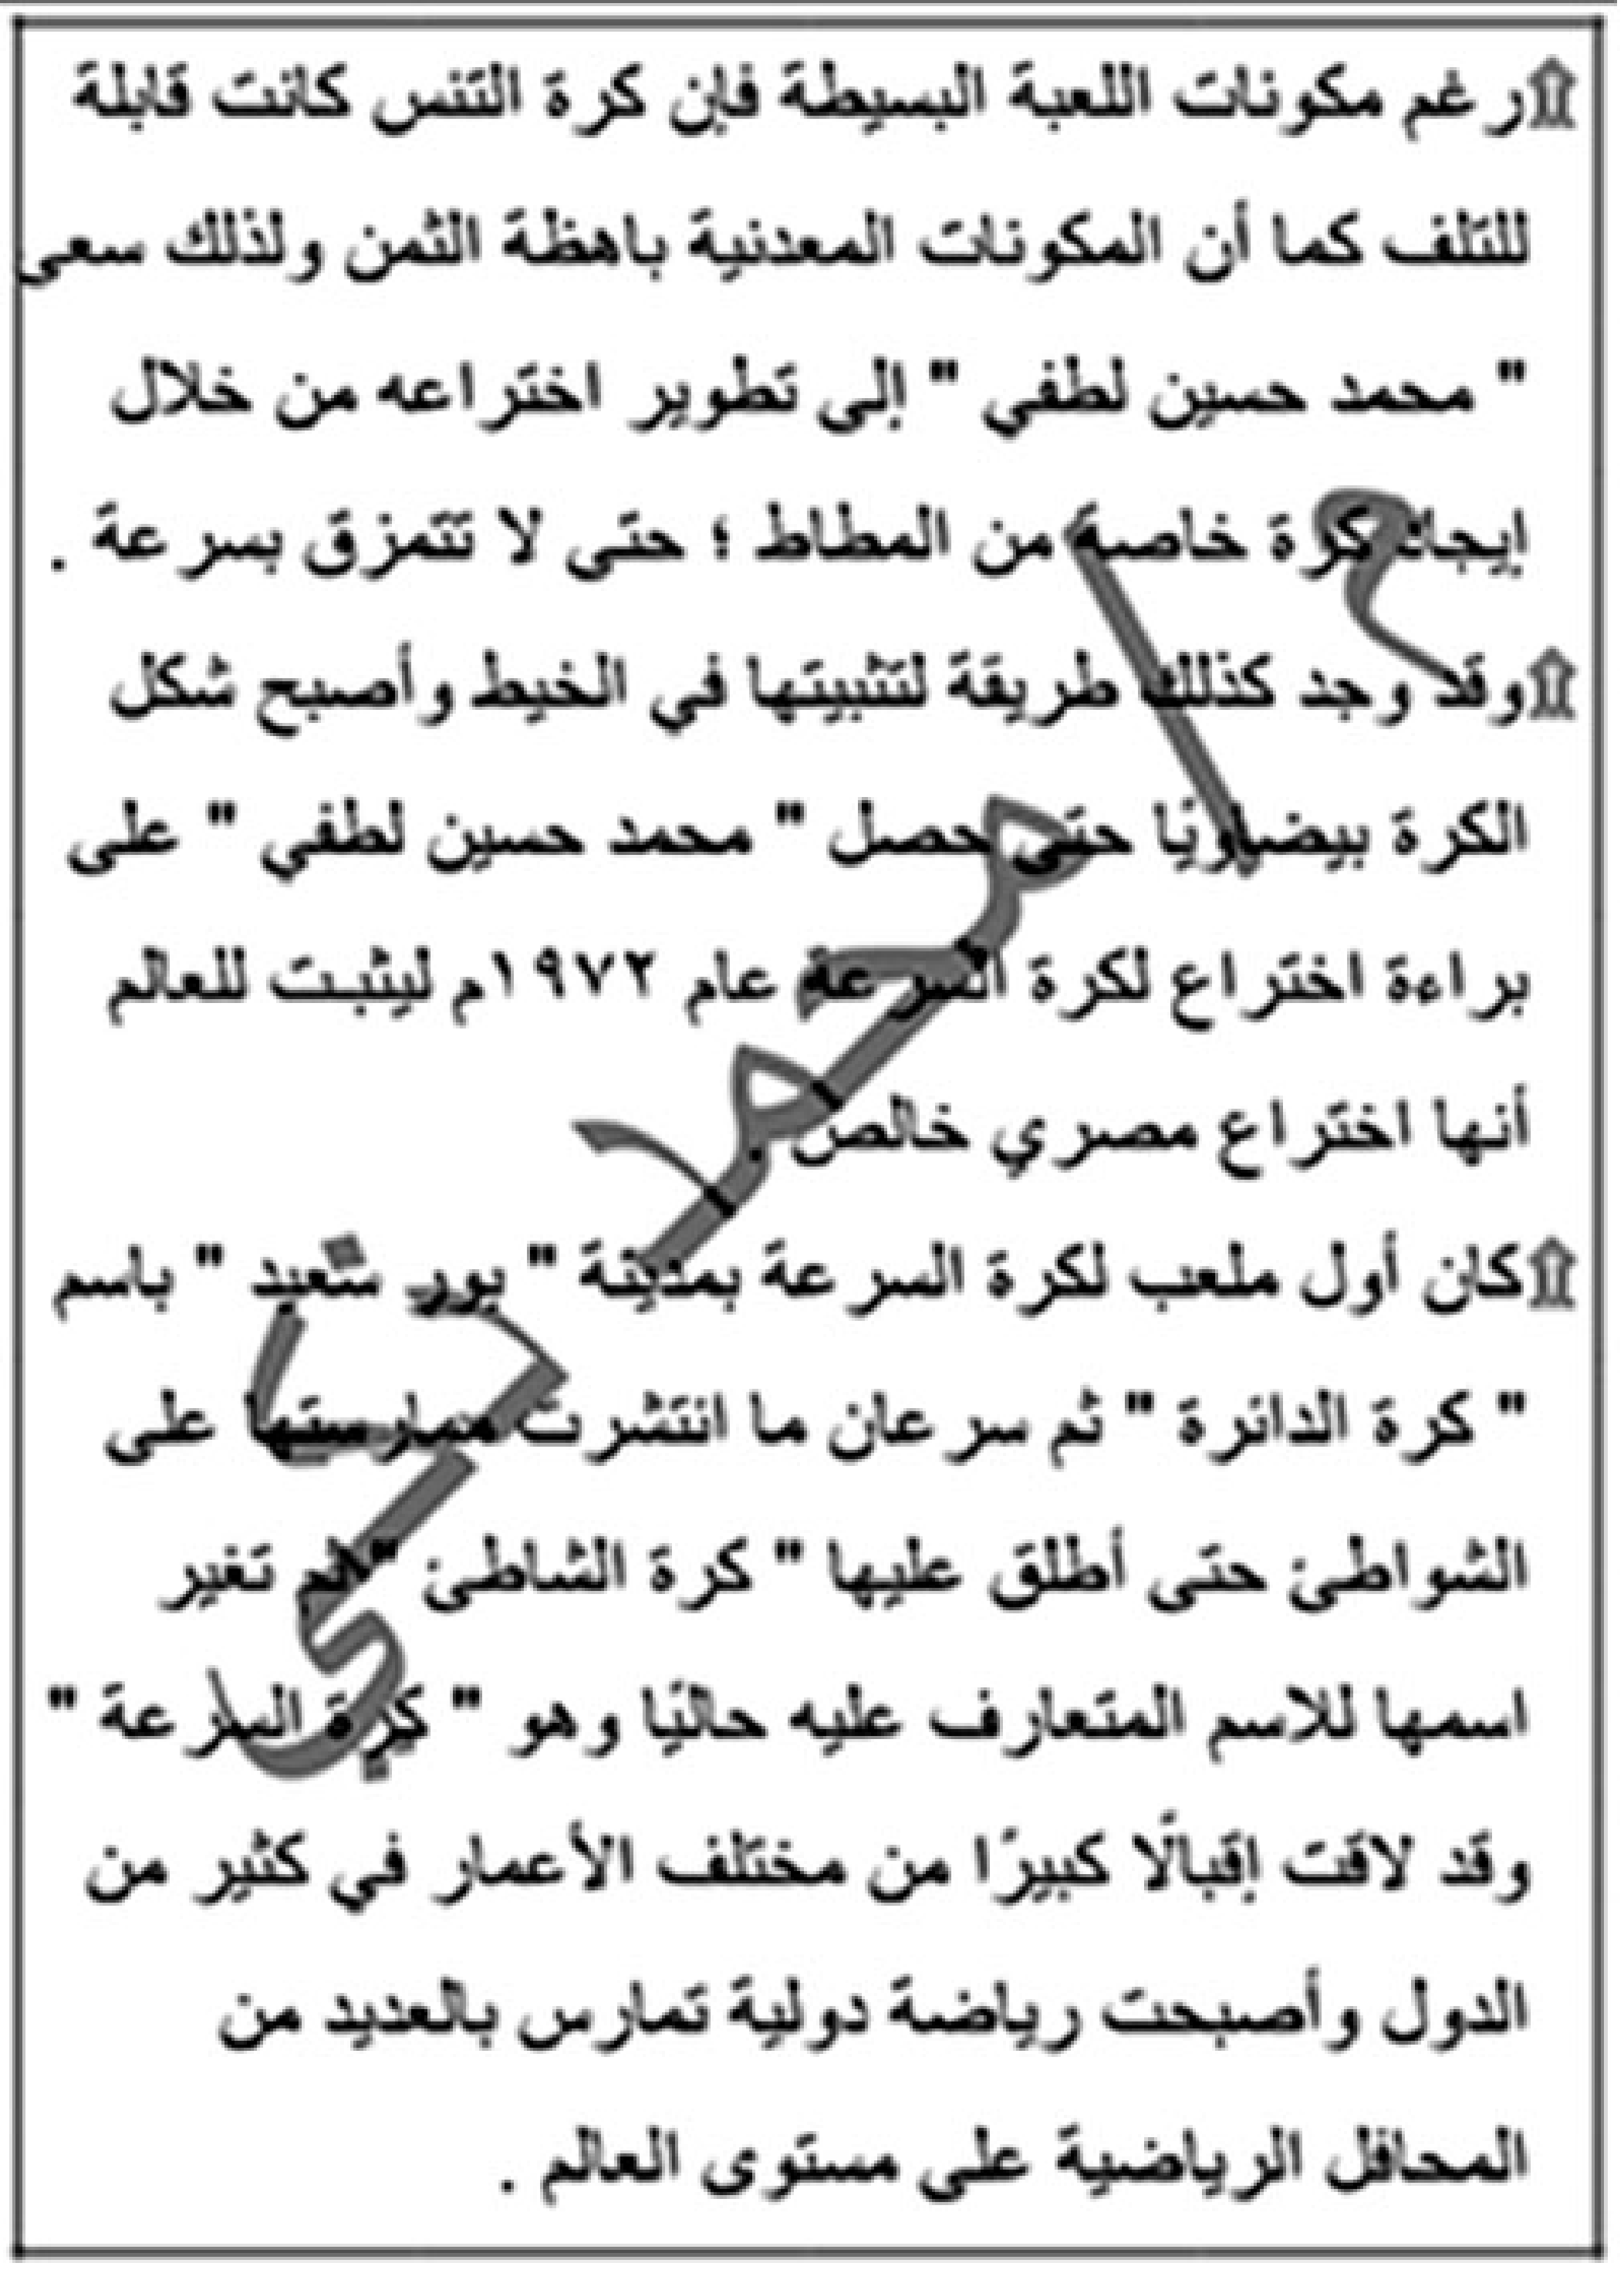 ۩رغم مكونات اللعبة البسيطة فإن كرة التنس كانت قابلة
للتلف كما أن المكونات المعدنية باهظة الثمن ولذلك سعى
" محمد حسين لطفي " إلى تطوير اختراعه من خلال
إيجاد كرة خاصة من المطاط ؛ حتى لا تتمزق بسرعة .
۩وقد وجد كذلك طريقة لتثبيتها في الخيط وأصبح شكل
الكرة بيضاويًا حتى حصل " محمد حسين لطفي " على
براءة اختراع لكرة السرعة عام ١٩٧٢م ليثبت للعالم
أنها اختراع مصري خالص .
۩كان أول ملعب لكرة السرعة بمدينة " بور سعيد " باسم
" كرة الدائرة " ثم سرعان ما انتشرت ممارستها على
الشواطئ حتى أطلق عليها " كرة الشاطئ " ثم تغير
اسمها للاسم المتعارف عليه حاليًا وهو " كرة السرعة "
وقد لاقت إقبالًا كبيرًا من مختلف الأعمار في كثير من
الدول وأصبحت رياضة دولية تمارس بالعديد من
المحافل الرياضية على مستوى العالم .